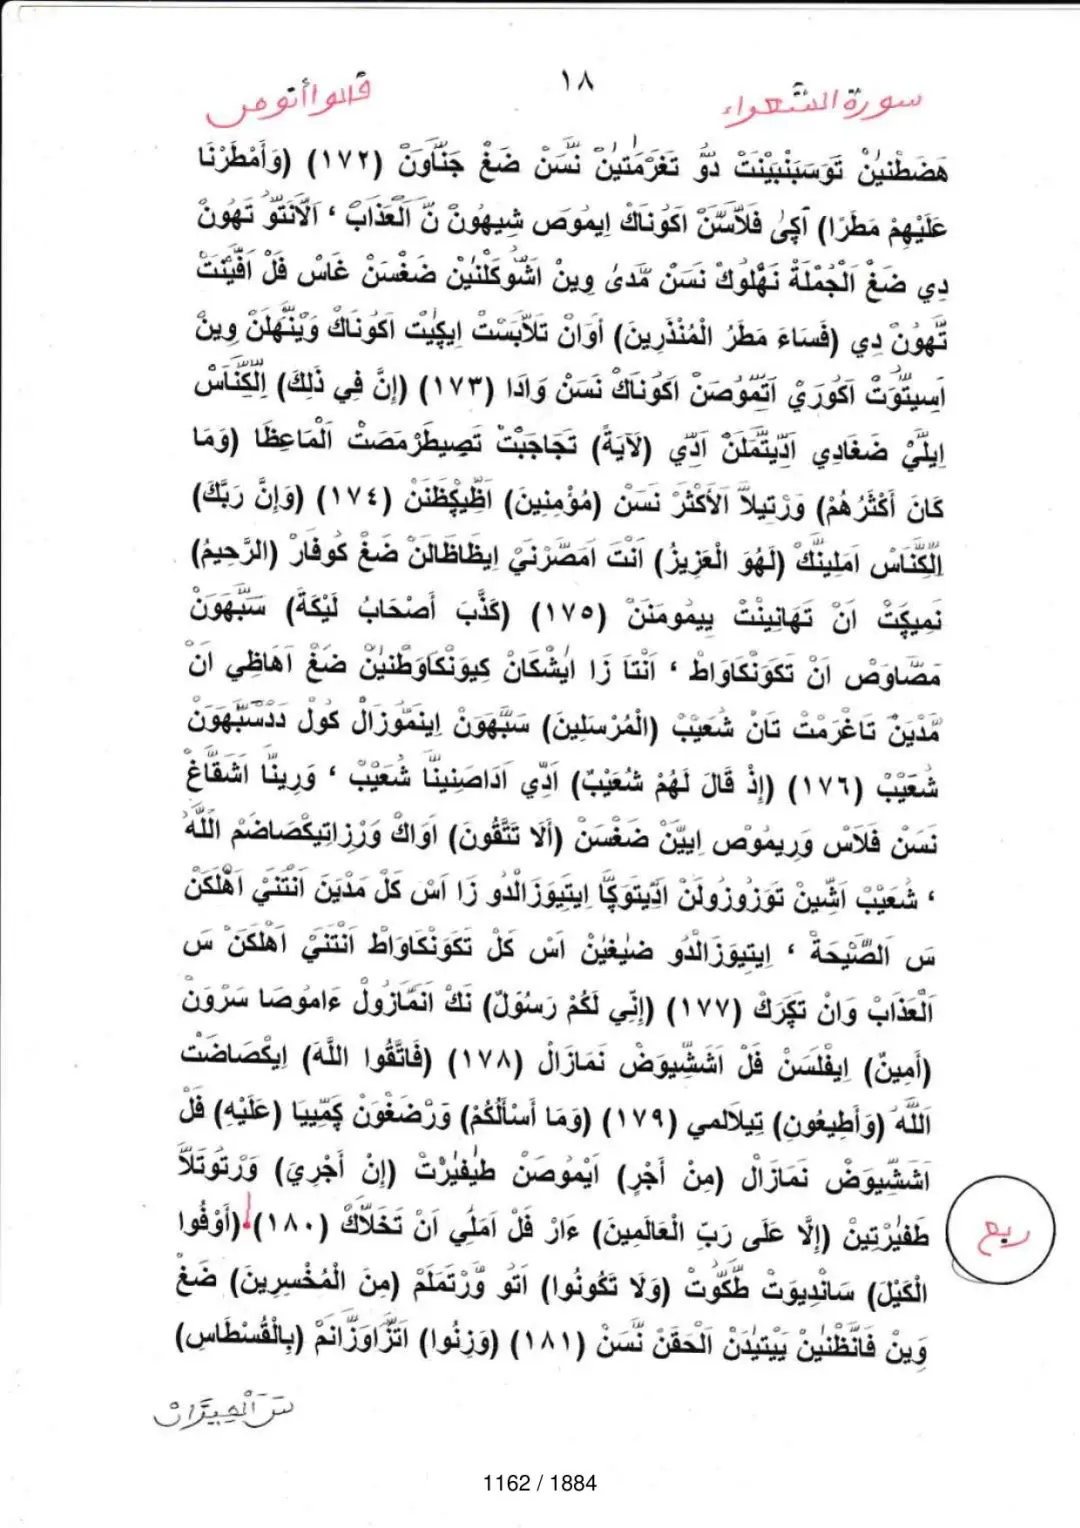 سورة الشعراء ١٨ قالوا أنومن
هَضَطْنِينْ تَوَسَبْنَبِيْنَتْ دوُّ تَغَرْمَتِينْ نَّسَنْ ضَغْ جَنَّاوَنْ (١٧٢) (وَأَمْطَرْنَا
عَلَيْهِمْ مَطَرًا) اَكِىٰ فَلَاسَّنْ اَكُونَاكْ اِيمُوصْ شِيهُونْ نَّ الْعَذَابْ ، اَلْاَنْتَوُّ تَهُونْ
دِي ضَغْ الْجُمْلَةْ نَهْلُوكْ نَسَنْ مَّدىٰ وِينْ اشُّوكَلْنِينْ ضَغْسَنْ غَاسْ فَلْ اَفَّيْنَتْ
تَّهُونْ دِي (فَسَاءَ مَطَرُ الْمُنْذَرِينَ) أوَانْ تَلَابَسْتْ اِيكِيْتْ اَكُونَاكْ وَيْنَهَلَنْ وِينْ
اَسِيتَّوَتْ اَكُورَيْ اَتَّمُوصَنْ اَكُونَاكْ نَسَنْ وَادَا (١٧٣) (إِنَّ فِي ذَلِكَ) اِلْكِنَاسْ
اِيلَيْ ضَغَادِي اَدِّيتَّمَلَنْ اَدِّي (لَآيَةً) تَجَاجَبْتْ تَصِيطَرْمَصَتْ الْمَاعِظَا (وَمَا
كَانَ أَكْثَرُهُمْ) وَرْتِيلَا الْأَكْثَرْ نَسَنْ (مُؤْمِنِينَ) اَظِّيكِظَنَنْ (١٧٤) (وَإِنَّ رَبَّكَ)
اِلْكِنَاسْ اَمَلِينَّكْ (لَهُوَ الْعَزِيزُ) اَنْتَ اَمَصَّرْنَيْ اِيظَاظَالَنْ ضَغْ كُوفَارْ (الرَّحِيمُ)
نَمِيكِتْ اَنْ تَهَانِينْتْ يِيمُومَنَنْ (١٧٥) (كَذَّبَ أَصْحَابُ لَيْكَةَ) سَبَّهَوَنْ
مَصَّاوَصْ اَنْ تَكَوَنْكَاوَاطْ ، اَنْتَا زَا اَيْشْكَانْ كِيوَنْكَاوَطْنِينْ ضَغْ اَهَاظِي اَنْ
مَّدْيَنْ تَاغْرَمْتْ تَانْ شُعَيْبْ (الْمُرْسَلِينَ) سَبَّهَوَنْ اِينَمُّوزَالْ كُولْ دَدْسَبَّهَوَنْ
شُعَيْبْ (١٧٦) (إِذْ قَالَ لَهُمْ شُعَيْبٌ) اَدِّي اَدَاصَنِينَّا شُعَيْبْ ، وَرِينَّا اَشَقَّاغْ
نَسَنْ فَلَاسْ وَرِيمُوصْ اِيَيَّنْ ضَغْسَنْ (أَلَا تَتَّقُونَ) اَوَاكْ وَرْزَاتِيكْصَاضَمْ اللَّهْ
، شُعَيْبْ اَشِّينْ تَوَزُوزُولَنْ اَدِّيتَوَكَّا اِيتِيوَزَالْدُو زَا اَسْ كَلْ مَدْيَنَ اَنْتَنَيْ اَهْلَكَنْ
سَ الصَّيْحَةْ ، اِيتِيوَزَالْدُو ضِيغِينْ اَسْ كَلْ تَكَوَنْكَاوَاطْ اَنْتَنَيْ اَهْلَكَنْ سَ
الْعَذَابْ وَانْ تَكَرَكْ (١٧٧) (إِنِّي لَكُمْ رَسُولٌ) نَكْ اَنَمَّازُولْ ءَامُوصَا سَرْوَنْ
(أَمِينٌ) اِيفْلَسَنْ فَلْ اَشَشِّيوَضْ نَمَازَالْ (١٧٨) (فَاتَّقُوا اللَّهَ) اِيكْصَاضَتْ
اللَّهْ (وَأَطِيعُونِ) تِيلَالَمِي (١٧٩) (وَمَا أَسْأَلُكُمْ) وَرْضَغْوَنْ كَمِّيَا (عَلَيْهِ) فَلْ
اَشَشِّيوَضْ نَمَازَالْ (مِنْ أَجْرٍ) اَيْمُوصَنْ طَيْفَيْرْتْ (إِنْ أَجْرِيَ) وَرْتُوتَلَا
طَفْيَرْتِينْ (إِلَّا عَلَى رَبِّ الْعَالَمِينَ) ءَارْ فَلْ اَمَلِي اَنْ تَخَلَّاكْ (١٨٠) (أَوْفُوا
ربع
الْكَيْلَ) سَانْدِيوَتْ طَّكُّوتْ (وَلَا تَكُونُوا) اَتَو وَّرْتَمَلَمْ (مِنَ الْمُخْسِرِينَ) ضَغْ
وِينْ فَانَّظْنِينْ يَيْتِيدَنْ الْحَقَنْ نَّسَنْ (١٨١) (وَزِنُوا) اَتَزَّاوَزَّانَمْ (بِالْقُسْطَاسِ)
سَ الْمِيزَانْ
1162 / 1884